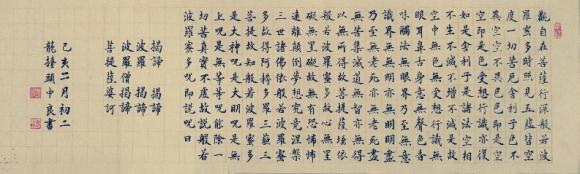 觀自在菩薩行深般若波
羅蜜多時照見五蘊皆空
度一切苦厄舍利子色不
異空空不異色色即是空
空即是色受想行識亦復
如是舍利子是諸法空相
不生不滅不增不減是故
空中無色無受想行識無
眼耳鼻舌身意無聲色香
味觸法無眼界乃至無意
識界無無明亦無無明盡
乃至無老死亦無老死盡
無苦集滅道無智亦無得
以無所得故菩提薩埵依
般若波羅蜜多故心無罣
礙無罣礙故無有恐怖
遠離顛倒夢想究竟涅槃
三世諸佛依般若波羅蜜
多故得阿耨多羅三藐三
菩提故知般若波羅蜜多
是大神咒是大明咒是無
上咒是無等等咒能除一
切苦真實不虛故說般若
波羅蜜多咒即說咒曰
揭諦 揭諦
波羅揭諦
波羅僧揭諦
菩提薩婆訶
己亥二月初二
龍擡頭中良書